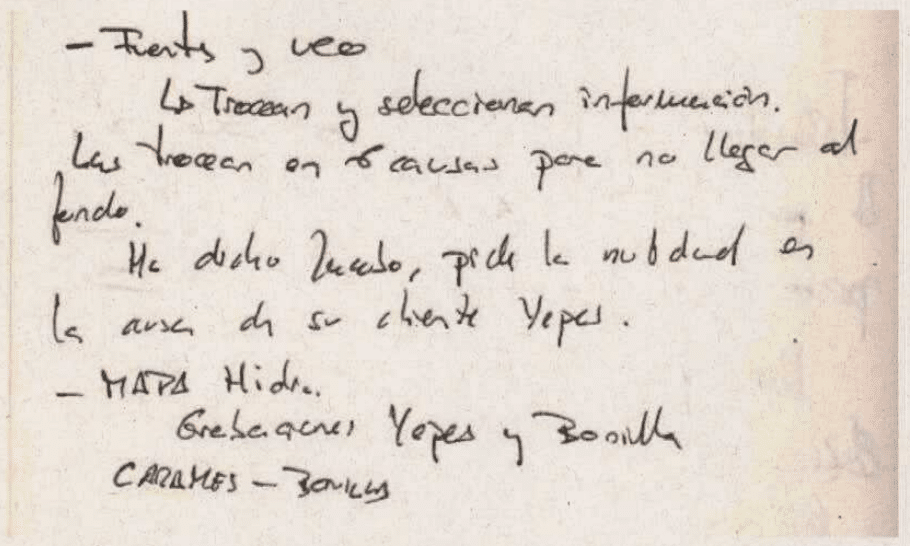 - Fuentes y veo
↳ Trocean y seleccionan información.
Las trocean en 6 causas para no llegar al
fondo.
Me dicho, pide la nulidad en
la causa de su cliente Yepes.
- MAPA Hidra.
Grabaciones Yepes y Bonilla
CARAMES - BONILLA